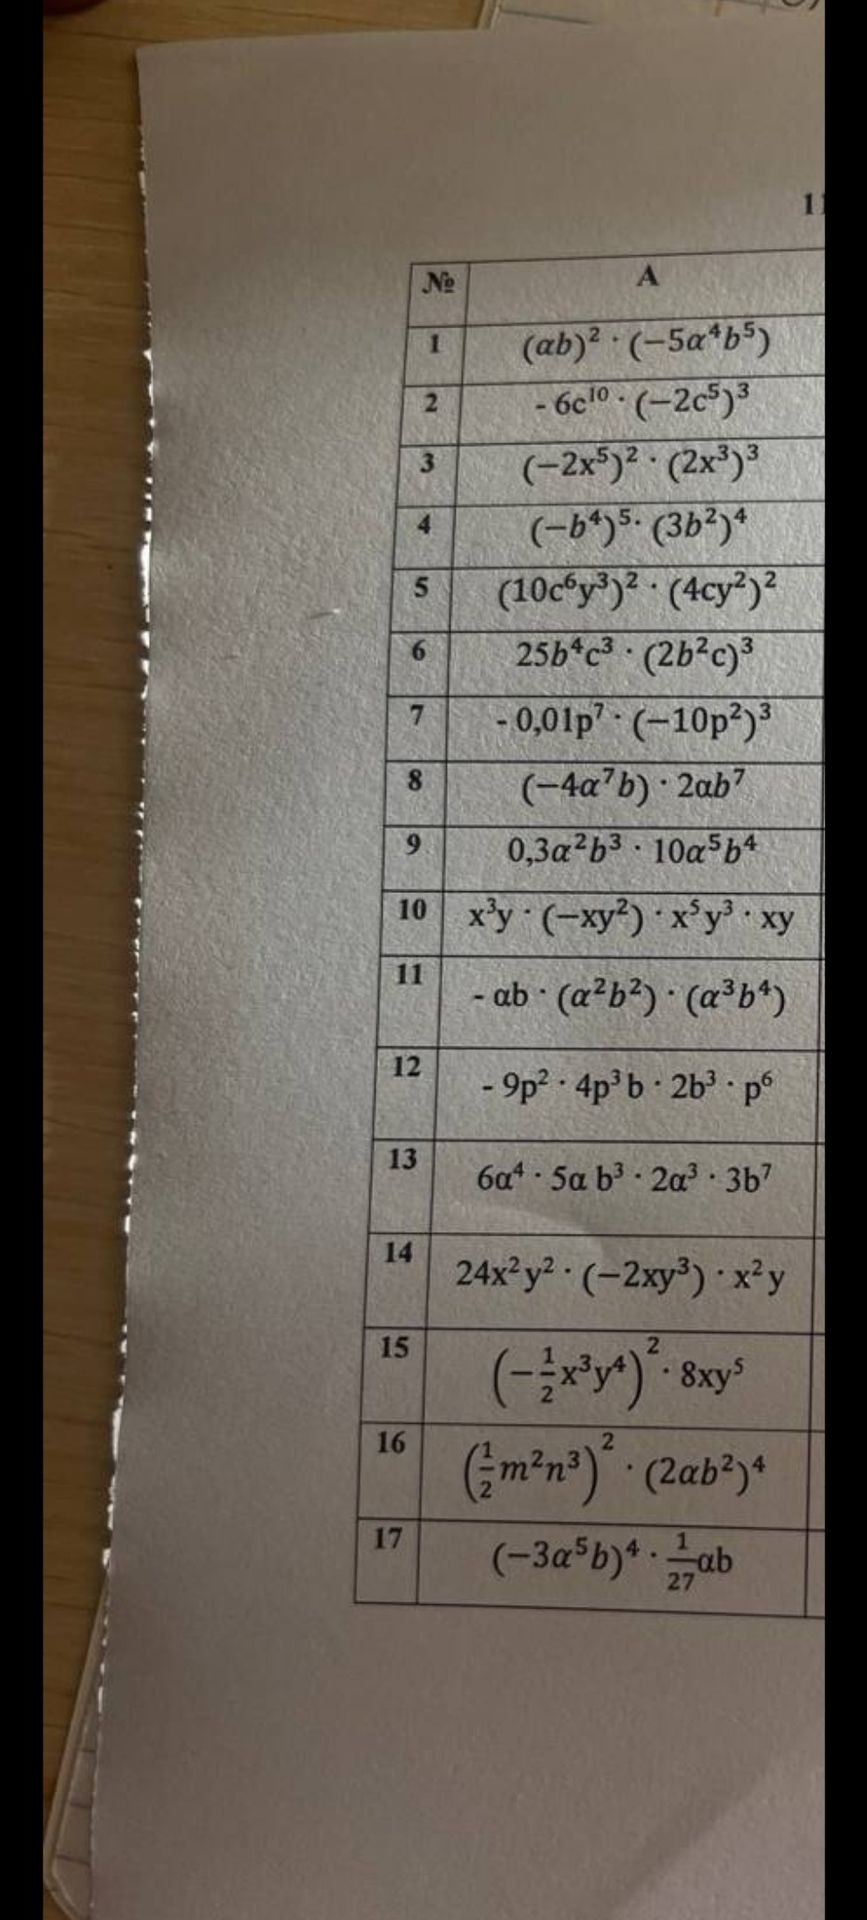 11
№ A
1 (αb)² · (−5α⁴b⁵)
2 - 6c¹⁰ · (−2c⁵)³
3 (−2x⁵)² · (2x³)³
4 (−b⁴)⁵· (3b²)⁴
5 (10c⁶y³)² · (4cy²)²
6 25b⁴c³ · (2b²c)³
7 - 0,01p⁷ · (−10p²)³
8 (−4α⁷b) · 2αb⁷
9 0,3α²b³ · 10α⁵b⁴
10 x³y · (−xy²) · x⁵y³ · xy
11 - αb · (α²b²) · (α³b⁴)
12 - 9p² · 4p³b · 2b³ · p⁶
13 6α⁴ · 5α b³ · 2α³ · 3b⁷
14 24x²y² · (−2xy³) · x²y
15 (−1/2 x³y⁴)² · 8xy⁵
16 (1/2 m²n³)² · (2αb²)⁴
17 (−3α⁵b)⁴ · 1/27 αb